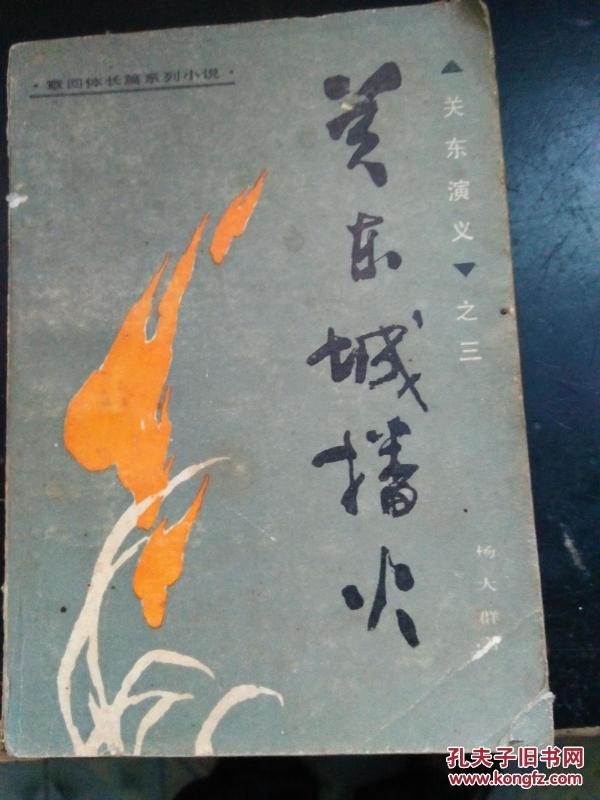 ·章回体长篇系列小说·
▲关东演义▼之三
关东城播火
杨大群著
孔夫子旧书网
www.kongfz.com